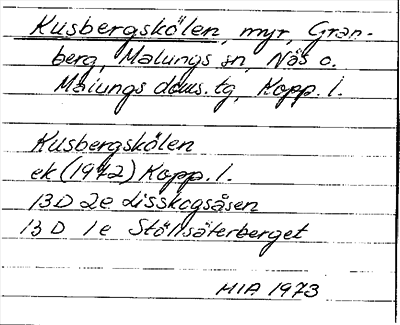 Kusbergskölen, myr, Gran-
berg, Malungs sn, Näs o.
Malungs doms. tg, Kopp. l.
Kusbergskölen
ek (1972) Kopp. l.
13D 2e Lisskogsåsen
13D 1e Stöllsäterberget
MIA 1973